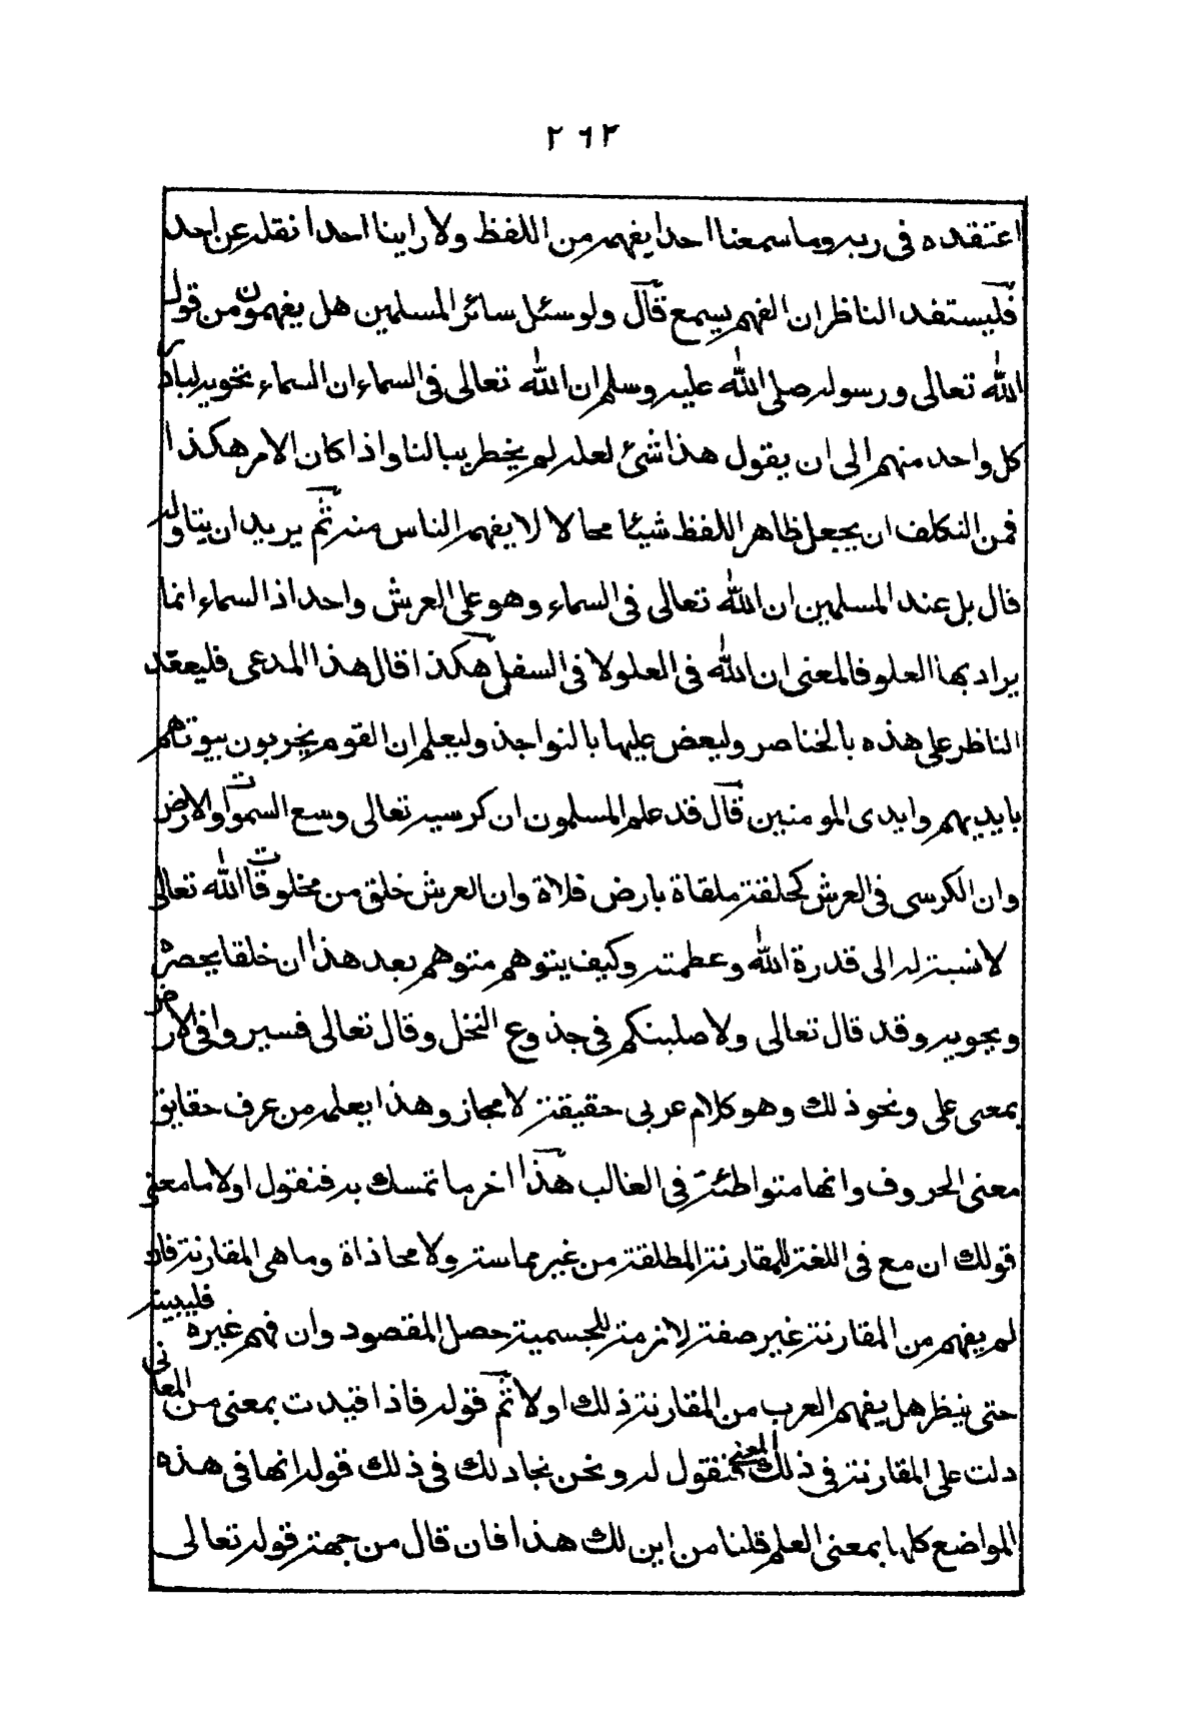 ٢٦٣
اعتقده فى ربه وما سمعنا احدا يفهمه من اللفظ ولا راينا احدا نقله عن احد
فليستفد الناظر ان الفهم يسمع قال ولو سئل سائر المسلمين هل يفهمون من قول
الله تعالى ورسوله صلى الله عليه وسلم ان الله تعالى فى السماء ان السماء تحويه لبادر
كل واحد منهم الى ان يقول هذا شئ لعله لم يخطر ببالنا واذا كان الامر هكذا
فمن التكلف ان يجعل ظاهر اللفظ شيئا محالا لا يفهم الناس منه ثم يريد ان يتاوله
قال بل عند المسلمين ان الله تعالى فى السماء وهو على العرش واحد اذ السماء انما
يراد بها العلو فالمعنى ان الله فى العلو لا فى السفل هكذا قال هذا المدعى فليعقد
الناظر على هذه بالخناصر وليعض عليها بالنواجذ وليعلم ان القوم يخربون بيوتهم
بايديهم وايدى المومنين قال قد علم المسلمون ان كرسيه تعالى وسع السموات والارض
وان الكرسى فى العرش كحلقة ملقاة بارض فلاة وان العرش خلق من مخلوقات الله تعالى
لا نسبة له الى قدرة الله وعظمته وكيف يتوهم متوهم بعد هذا ان خلقا يحصره
ويحويه وقد قال تعالى ولاصلبنكم فى جذوع النخل وقال تعالى فسيروا فى الارض
بمعنى على ونحو ذلك وهو كلام عربى حقيقة لا مجاز وهذا يعلمه من عرف حقايق
معنى الحروف وانها متواطئة فى الغالب هذا اخر ما تمسك به فنقول اولا ما معنى
قولك ان مع فى اللغة للمقارنة المطلقة من غير مماسة ولا محاذاة وما هى المقارنة فان
لم يفهم من المقارنة غير صفة لازمة للجسمية حصل المقصود وان فهم غيره فليبينه
حتى ينظر هل يفهم العرب من المقارنة ذلك اولا ثم قوله فاذا قيدت بمعنى من المعانى
دلت على المقارنة فى ذلك المعنى فنقول له ونحن نجادلك فى ذلك قوله انها فى هذه
المواضع كلها بمعنى العلم قلنا من اين لك هذا فان قال من جهة قوله تعالى